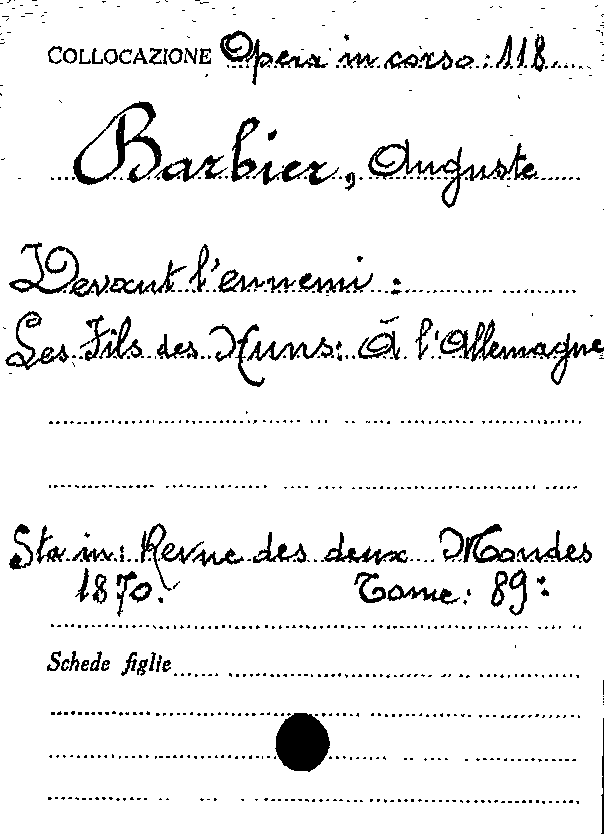 COLLOCAZIONE Opera in corso: 118
Barbier, Auguste
Devant l'ennemi :
Les Fils des Huns: À l'Allemagne
Sta in: Revue des deux Mondes
1870. Tome: 89:
Schede figlie